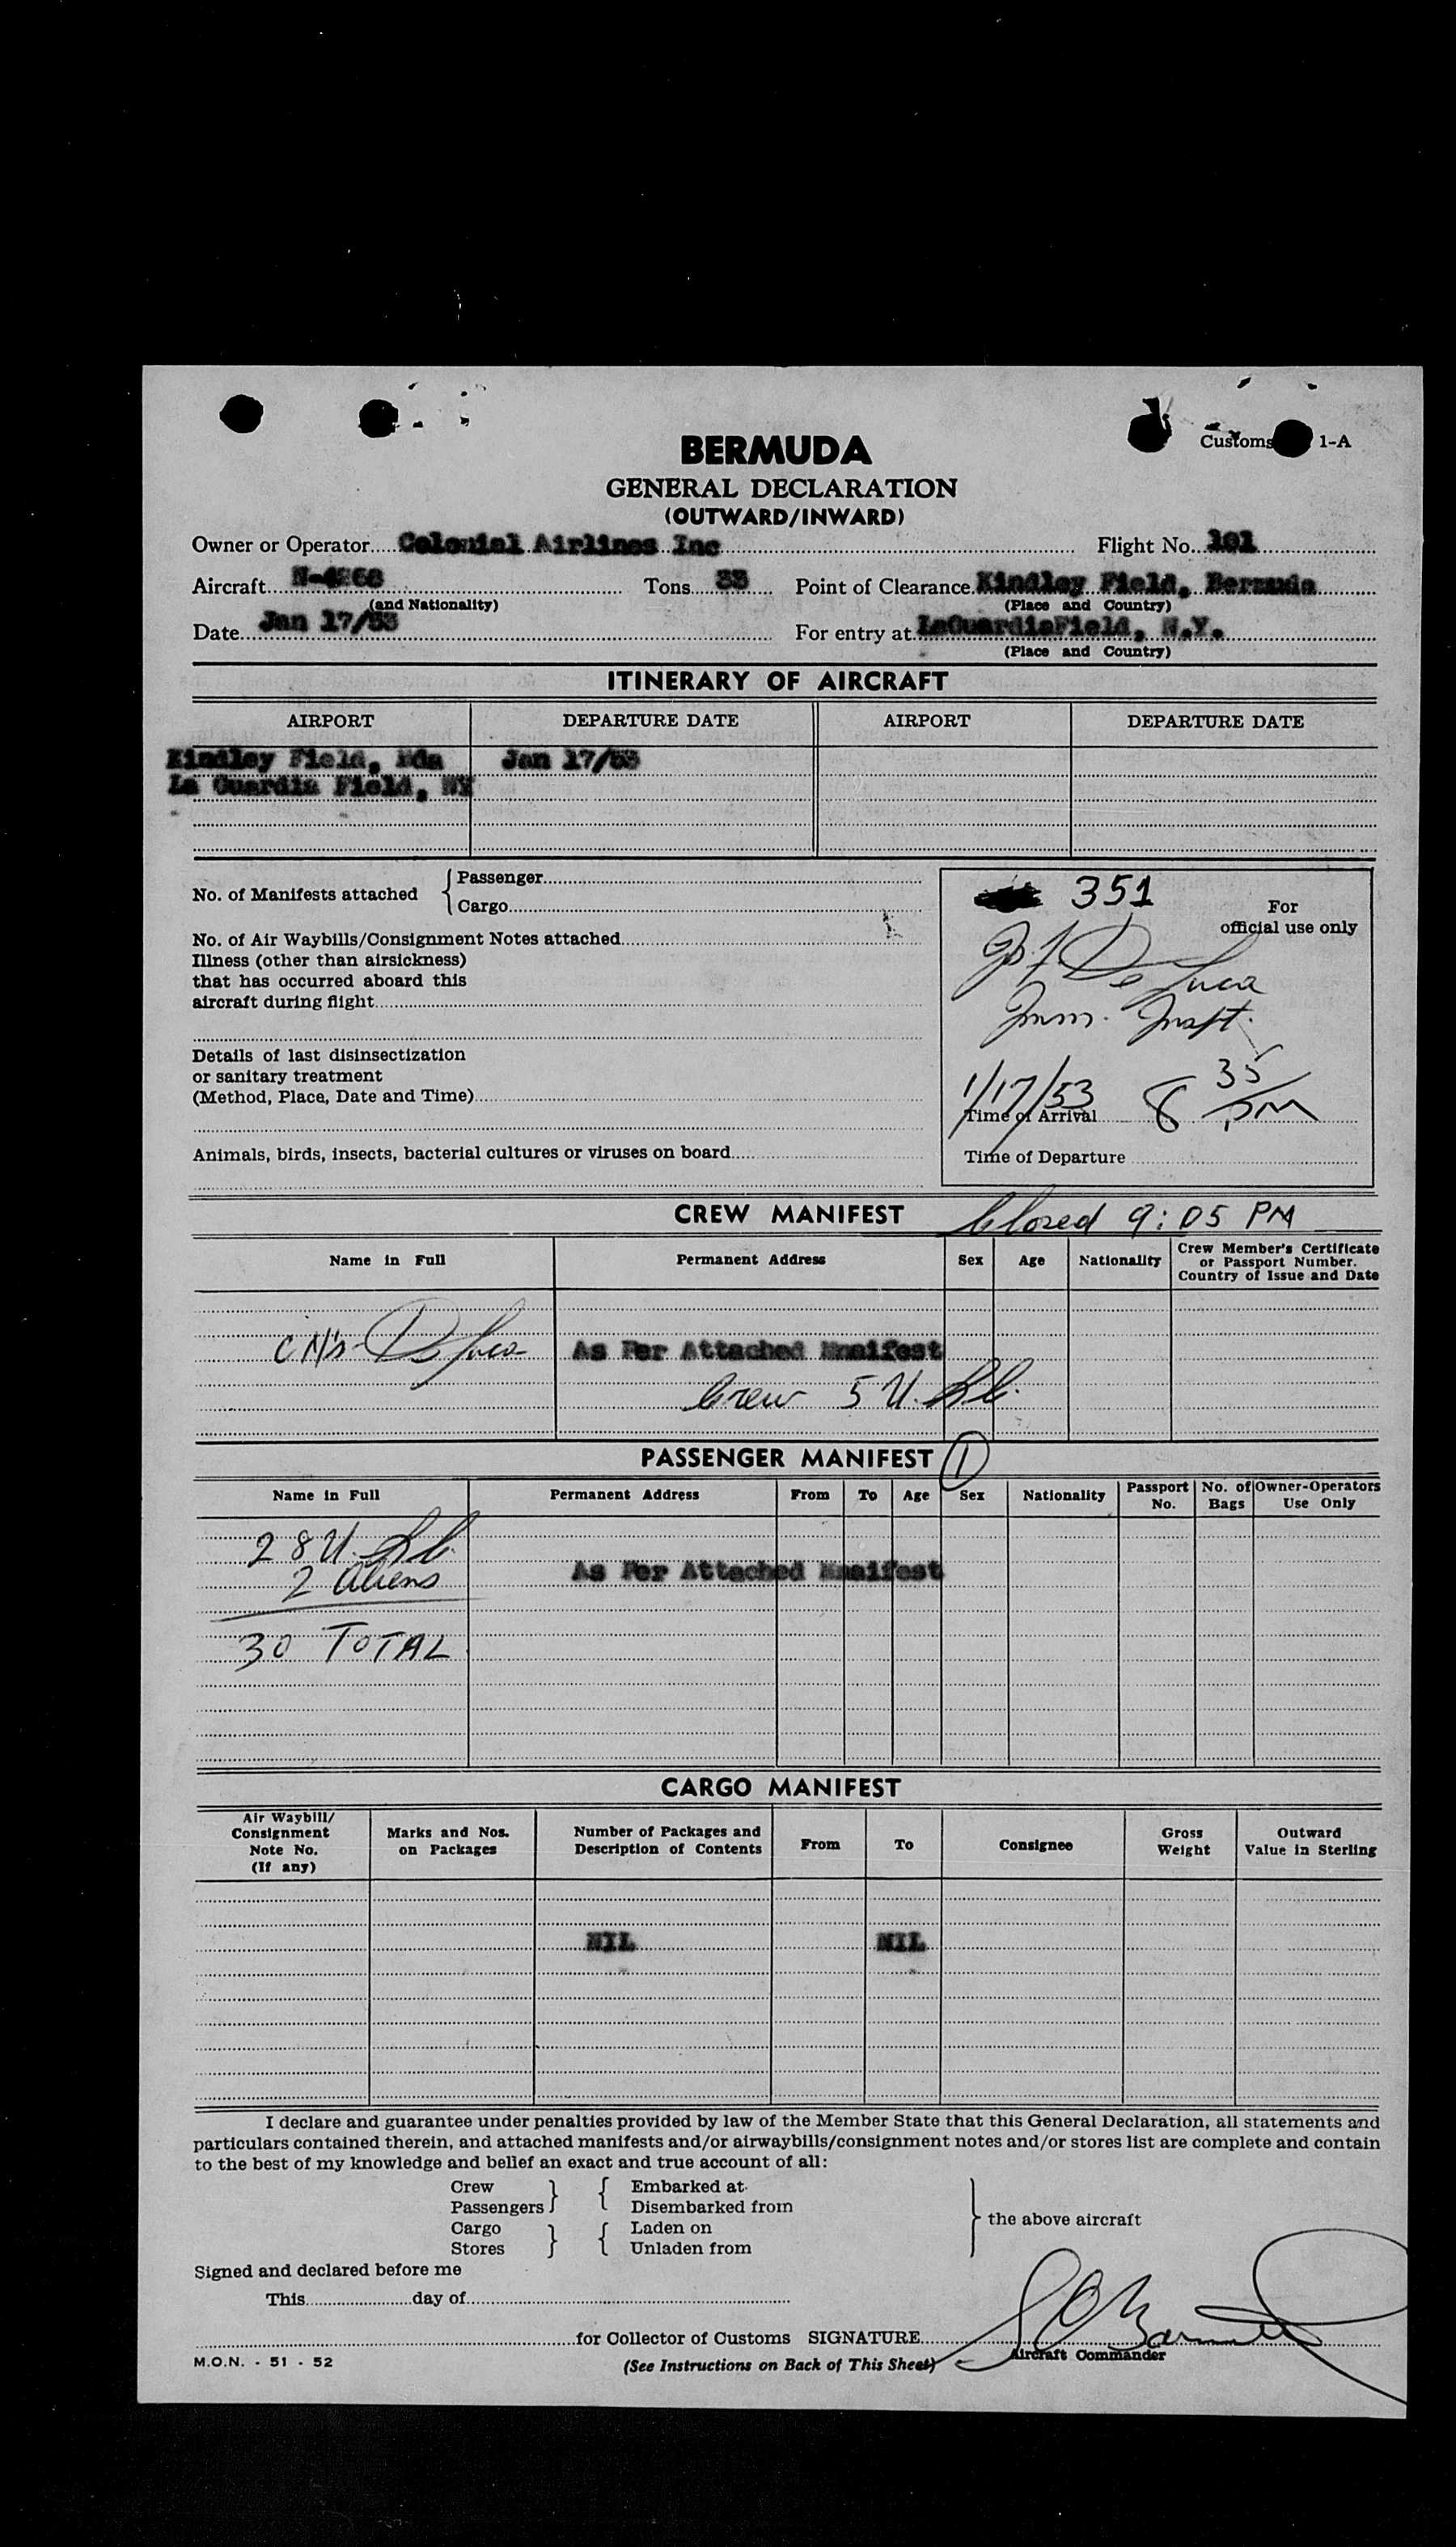 Customs 1-A
BERMUDA
GENERAL DECLARATION
(OUTWARD/INWARD)
Owner or Operator Colonial Airlines Inc Flight No. 101
Aircraft Tons 33 Point of Clearance Kindley Field, Bermuda
(and Nationality) (Place and Country)
Date Jan 17/53 For entry at LaGuardiaField, N.Y.
(Place and Country)
ITINERARY OF AIRCRAFT
AIRPORT DEPARTURE DATE AIRPORT DEPARTURE DATE
Kindley Field, Bda Jan 17/53
La Guardia Field, NY
No. of Manifests attached { Passenger
Cargo
351
For
official use only
No. of Air Waybills/Consignment Notes attached
Illness (other than airsickness)
that has occurred aboard this
aircraft during flight
De Luca
Imm. Inspt.
Details of last disinsectization
or sanitary treatment
(Method, Place, Date and Time)
1/17/53 8 35 PM
Time of Arrival
Animals, birds, insects, bacterial cultures or viruses on board
Time of Departure
CREW MANIFEST Closed 9:05 PM
Name in Full Permanent Address Sex Age Nationality Crew Member's Certificate or Passport Number. Country of Issue and Date
De Luca As Per Attached Manifest
Crew 5 U.S.C.
PASSENGER MANIFEST 1
Name in Full Permanent Address From To Age Sex Nationality Passport No. No. of Bags Owner-Operators Use Only
28 U.S.C.
2 Aliens As Per Attached Manifest
30 TOTAL
CARGO MANIFEST
Air Waybill/ Consignment Note No. (If any) Marks and Nos. on Packages Number of Packages and Description of Contents From To Consignee Gross Weight Outward Value in Sterling
NIL NIL
I declare and guarantee under penalties provided by law of the Member State that this General Declaration, all statements and
particulars contained therein, and attached manifests and/or airwaybills/consignment notes and/or stores list are complete and contain
to the best of my knowledge and belief an exact and true account of all:
Crew } { Embarked at
Passengers Disembarked from
} the above aircraft
Cargo } { Laden on
Stores Unladen from
Signed and declared before me
This day of
for Collector of Customs SIGNATURE
Aircraft Commander
M.O.N. - 51 - 52 (See Instructions on Back of This Sheet)